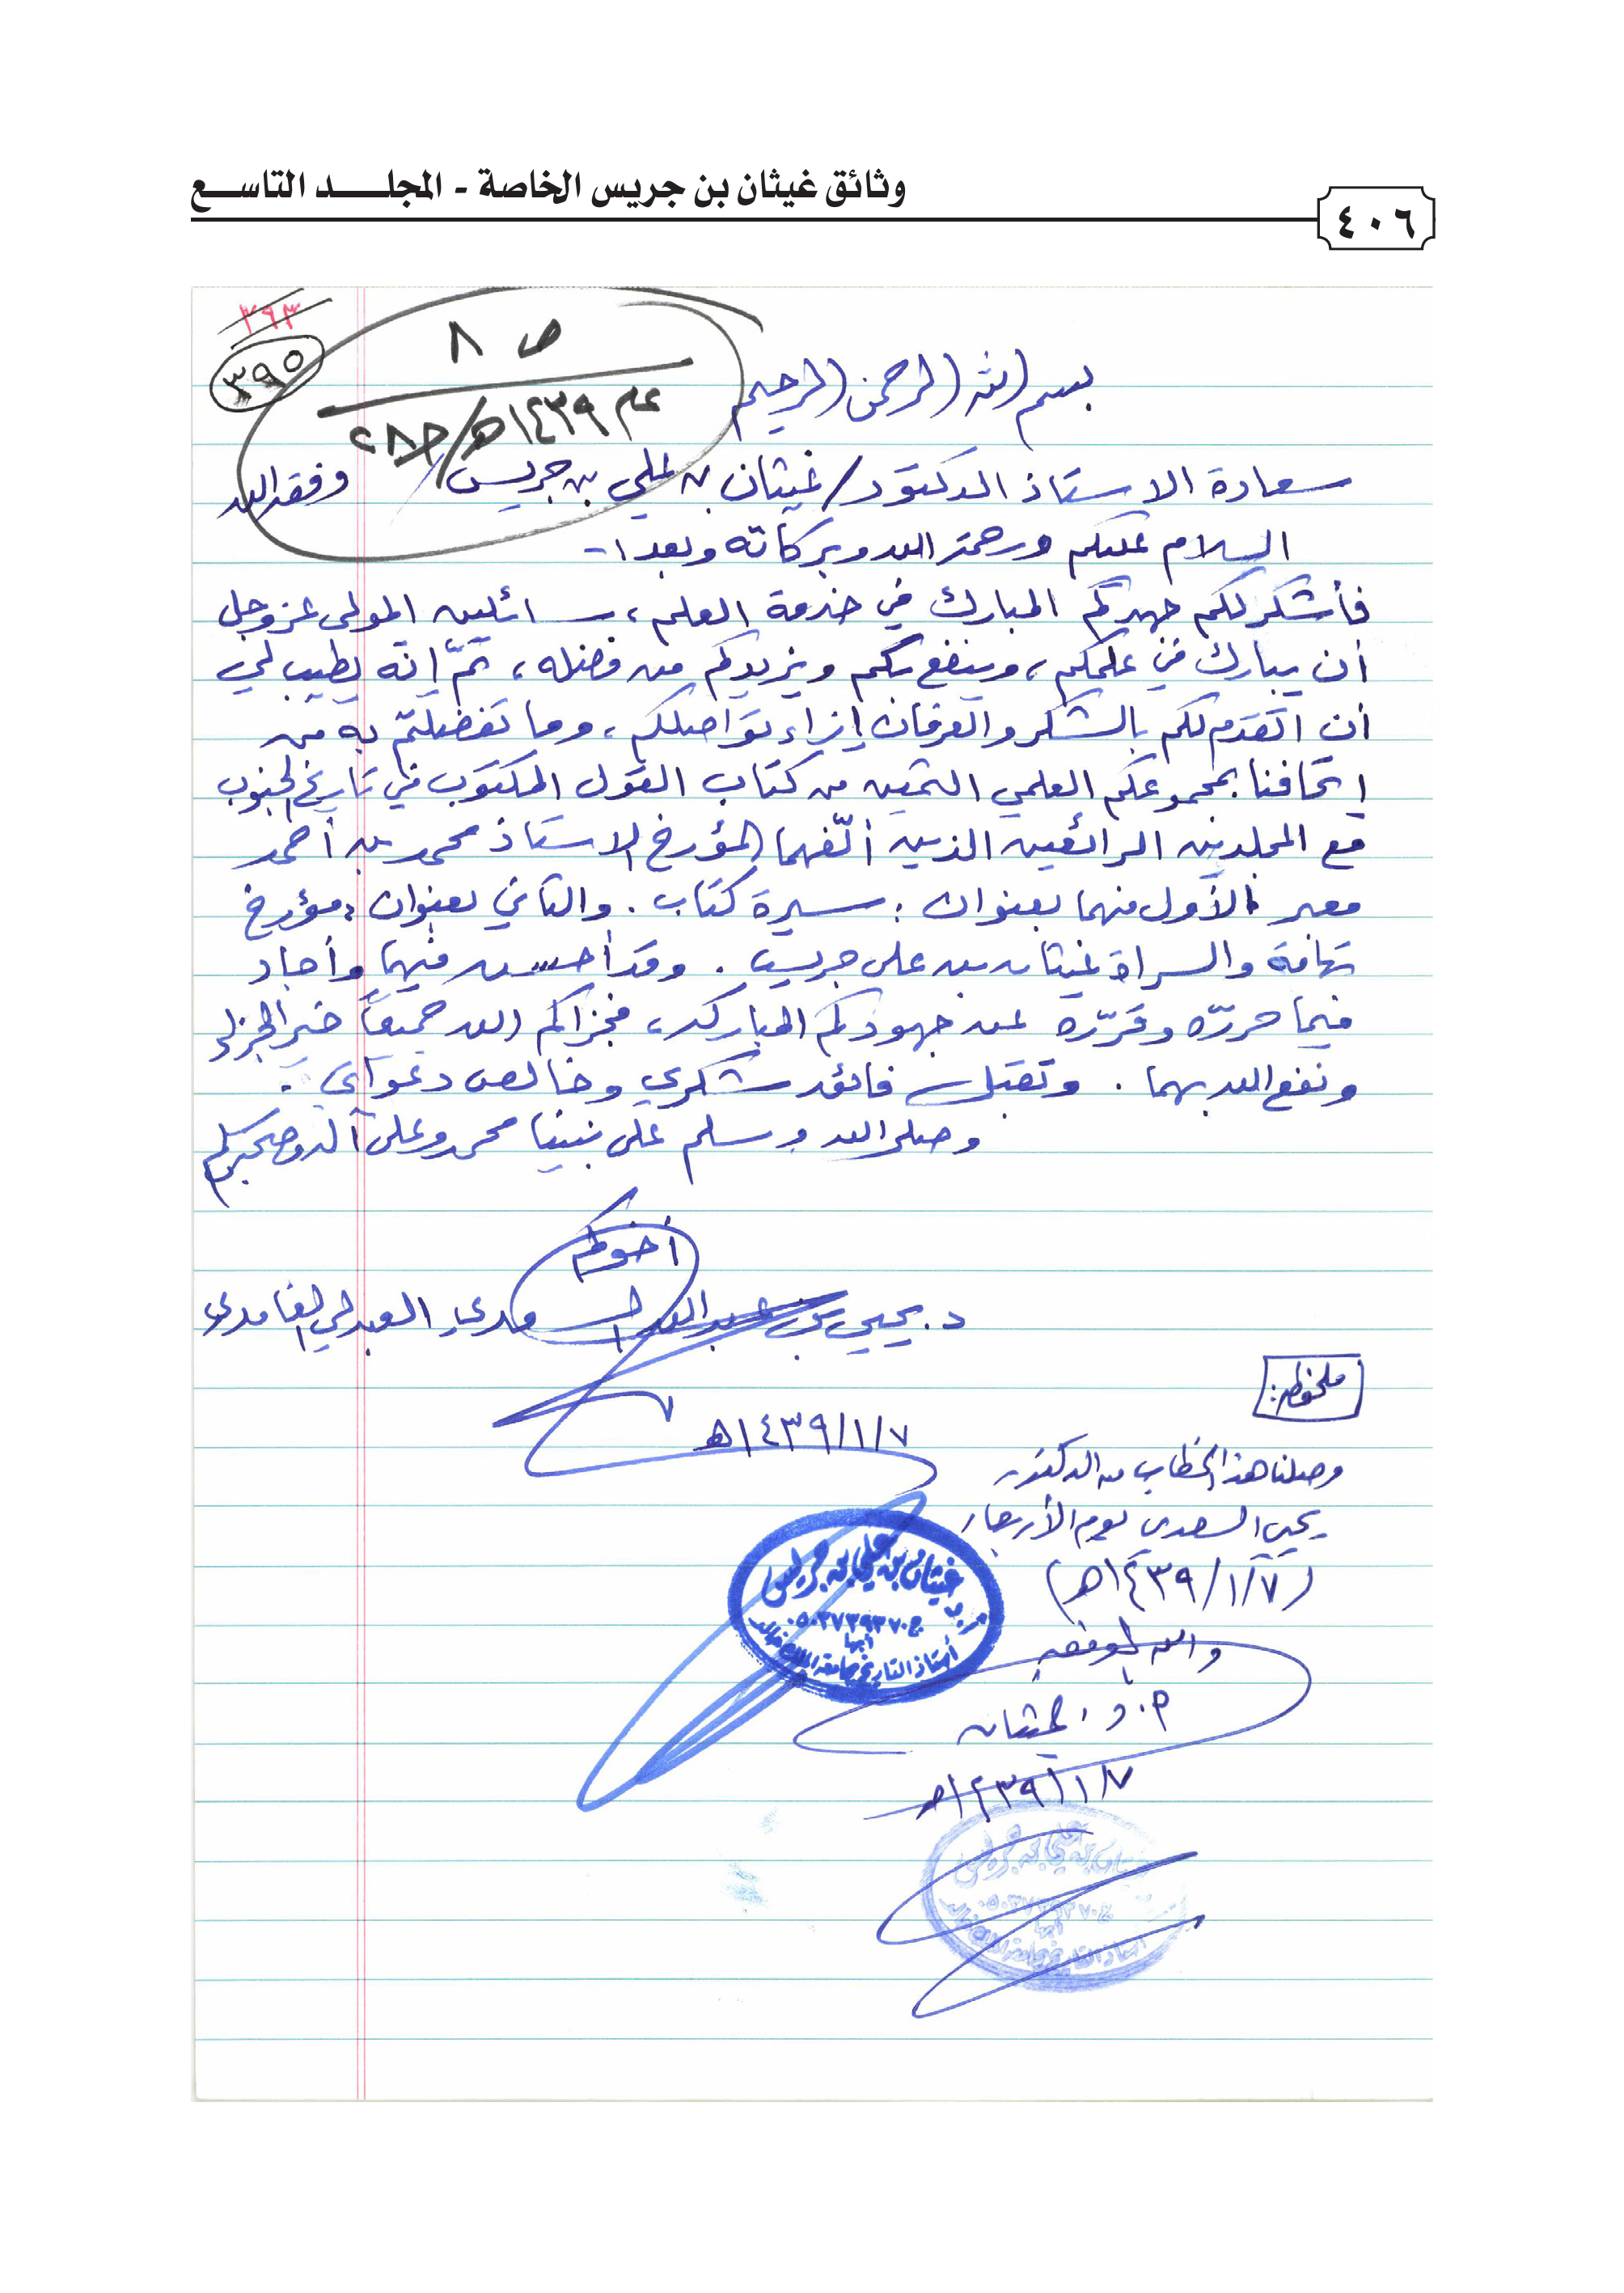 وثائق غيثان بن جريس الخاصة - المجلد التاسع
٤٠٦
٣٦٣
٣٩٥
ص ٨
عام ١٤٣٩هـ/ج٢٨
بسم الله الرحمن الرحيم
سعادة الاستاذ الدكتور/ غيثان بن علي بن جريس وفقه الله
السلام عليكم ورحمة الله وبركاته وبعد :-
فأشكر لكم جهدكم المبارك في خدمة العلم، سائلين المولى عز وجل
أن يبارك في علمكم، وينفع بكم ويزيدكم من فضله، ثمّ إنّه يطيب لي
أن اتقدم لكم بالشكر والعرفان إزاء تواصلكم، وما تفضلتم به من
إتحافنا بمجموعكم العلمي الثمين من كتاب القول المكتوب في تاريخ الجنوب
مع المجلدين الرائعين الذين ألّفهما المؤرخ الاستاذ محمد بن أحمد
معبر الأول منهما بعنوان : سيرة كتاب . والثاني بعنوان : مؤرخ
تهامة والسراة غيثان بن علي جريس . وقد أحسن فيهما وأجاد
فيما حرره وقرّره عن جهودكم المباركة، فجزاكم الله جميعاً خير الجزاء
ونفع الله بهما . وتقبل فائق شكري وخالص دعواتي .
وصلى الله وسلم على نبينا محمد وعلى آله وصحبه وسلم
أخوكم
د. يحيى بن عبدالله السعدي العبدلي الغامدي
١٤٣٩/١/٧هـ
ملحوظة:
وصلنا هذا الخطاب من الدكتور
يحيى السعدي يوم الأربعاء
(١٤٣٩/١/٧هـ)
والله الموفق
أ.د. غيثان
١٤٣٩/١/٧هـ
غيثان بن علي بن جريس
ج٠٥٠٣٧٣٩٣٧٠
أبها
أستاذ التاريخ جامعة الملك خالد